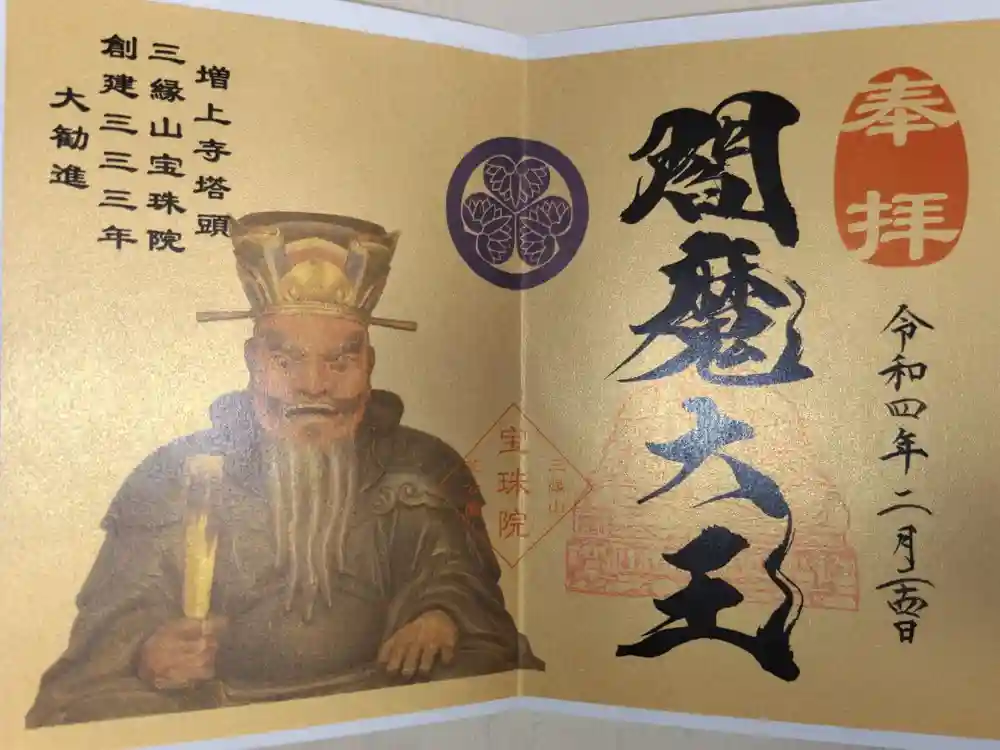 奉拝
令和四年二月
閻魔大王
三縁山
宝珠院
増上寺塔頭
三縁山宝珠院
創建三三三年
大勧進